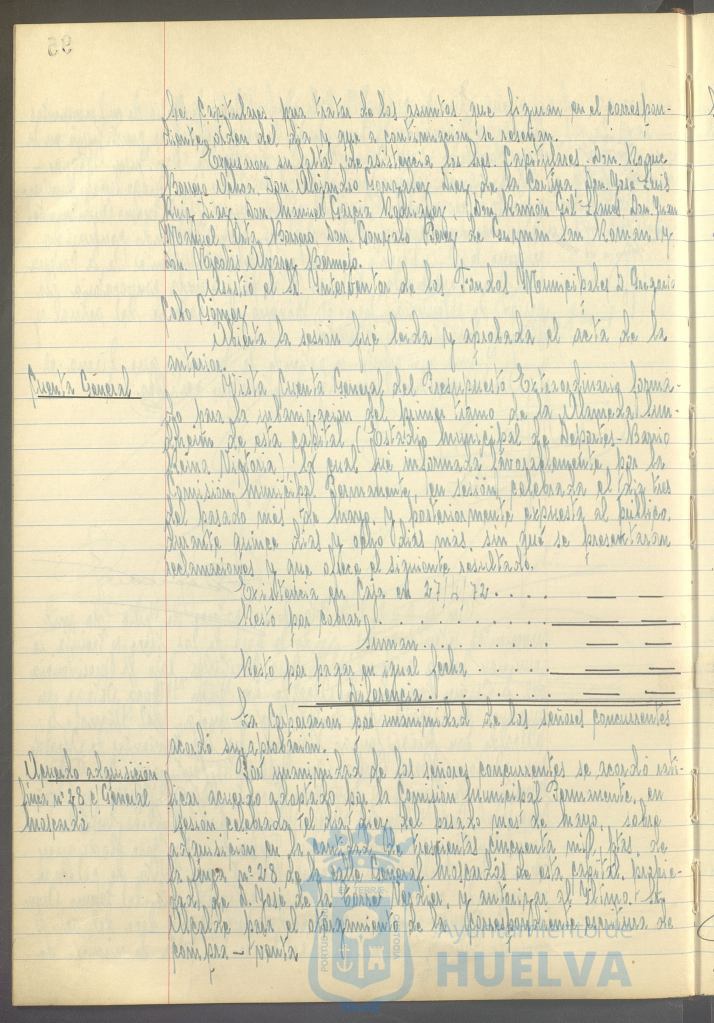 95
Sres. Capitulares, para tratar de los asuntos que figuran en el correspon-
diente orden del día y que a continuación se reseñan.
Excusaron su falta de asistencia los Sres. Capitulares. Don Roque
Barrero Don Alejandro Gonzalez Diaz de la Cortina, Don José Luis
Ruiz Diaz, Don Manuel Garcia Rodriguez, Don Ramón Gil-Llanes, Don Juan
Manuel Anta Barrero, Don Gonzalo Perez de Guzmán San Román y
Don Nicolás Alvarez Bermejo.
Asistió el Sr. Interventor de los Fondos Municipales D. Gregorio
Cobo Gómez
Abierta la sesión fué leida y aprobada el acta de la
anterior.
Cuenta General
Vista Cuenta General del Presupuesto Extraordinario forma-
do para la urbanización del primer tramo de la Alameda Sun-
dheim de esta capital (Estadio Municipal de Deportes-Barrio
Reina Victoria), la cual fué informada favorablemente por la
Comisión Municipal Permanente, en sesión celebrada el dia tres
del pasado mes de mayo, y posteriormente expuesta al público,
durante quince dias y ocho dias mas, sin que se presentaran
reclamaciones y que ofrece el siguiente resultado.
Existencia en Caja en 27/ /72
Resto por cobrar
Suman
Resto por pagar en igual fecha
Diferencia
La Corporación por unanimidad de los señores concurrentes
acordó su aprobación.
Acuerdo adquisición
finca nº 28 c/ General
Moscardó
Por unanimidad de los señores concurrentes se acordó rati-
ficar acuerdo adoptado por la Comisión Municipal Permanente, en
sesión celebrada el día diez del pasado mes de mayo, sobre
adquisición en la cantidad de trescientas cincuenta mil ptas. de
la finca nº 28 de la calle General Moscardó de esta capital, propie-
dad de D. José de la y autorizar al Iltmo. Sr.
Alcalde para el otorgamiento de la correspondiente escritura de
compra-venta
Ayuntamiento de
HUELVA